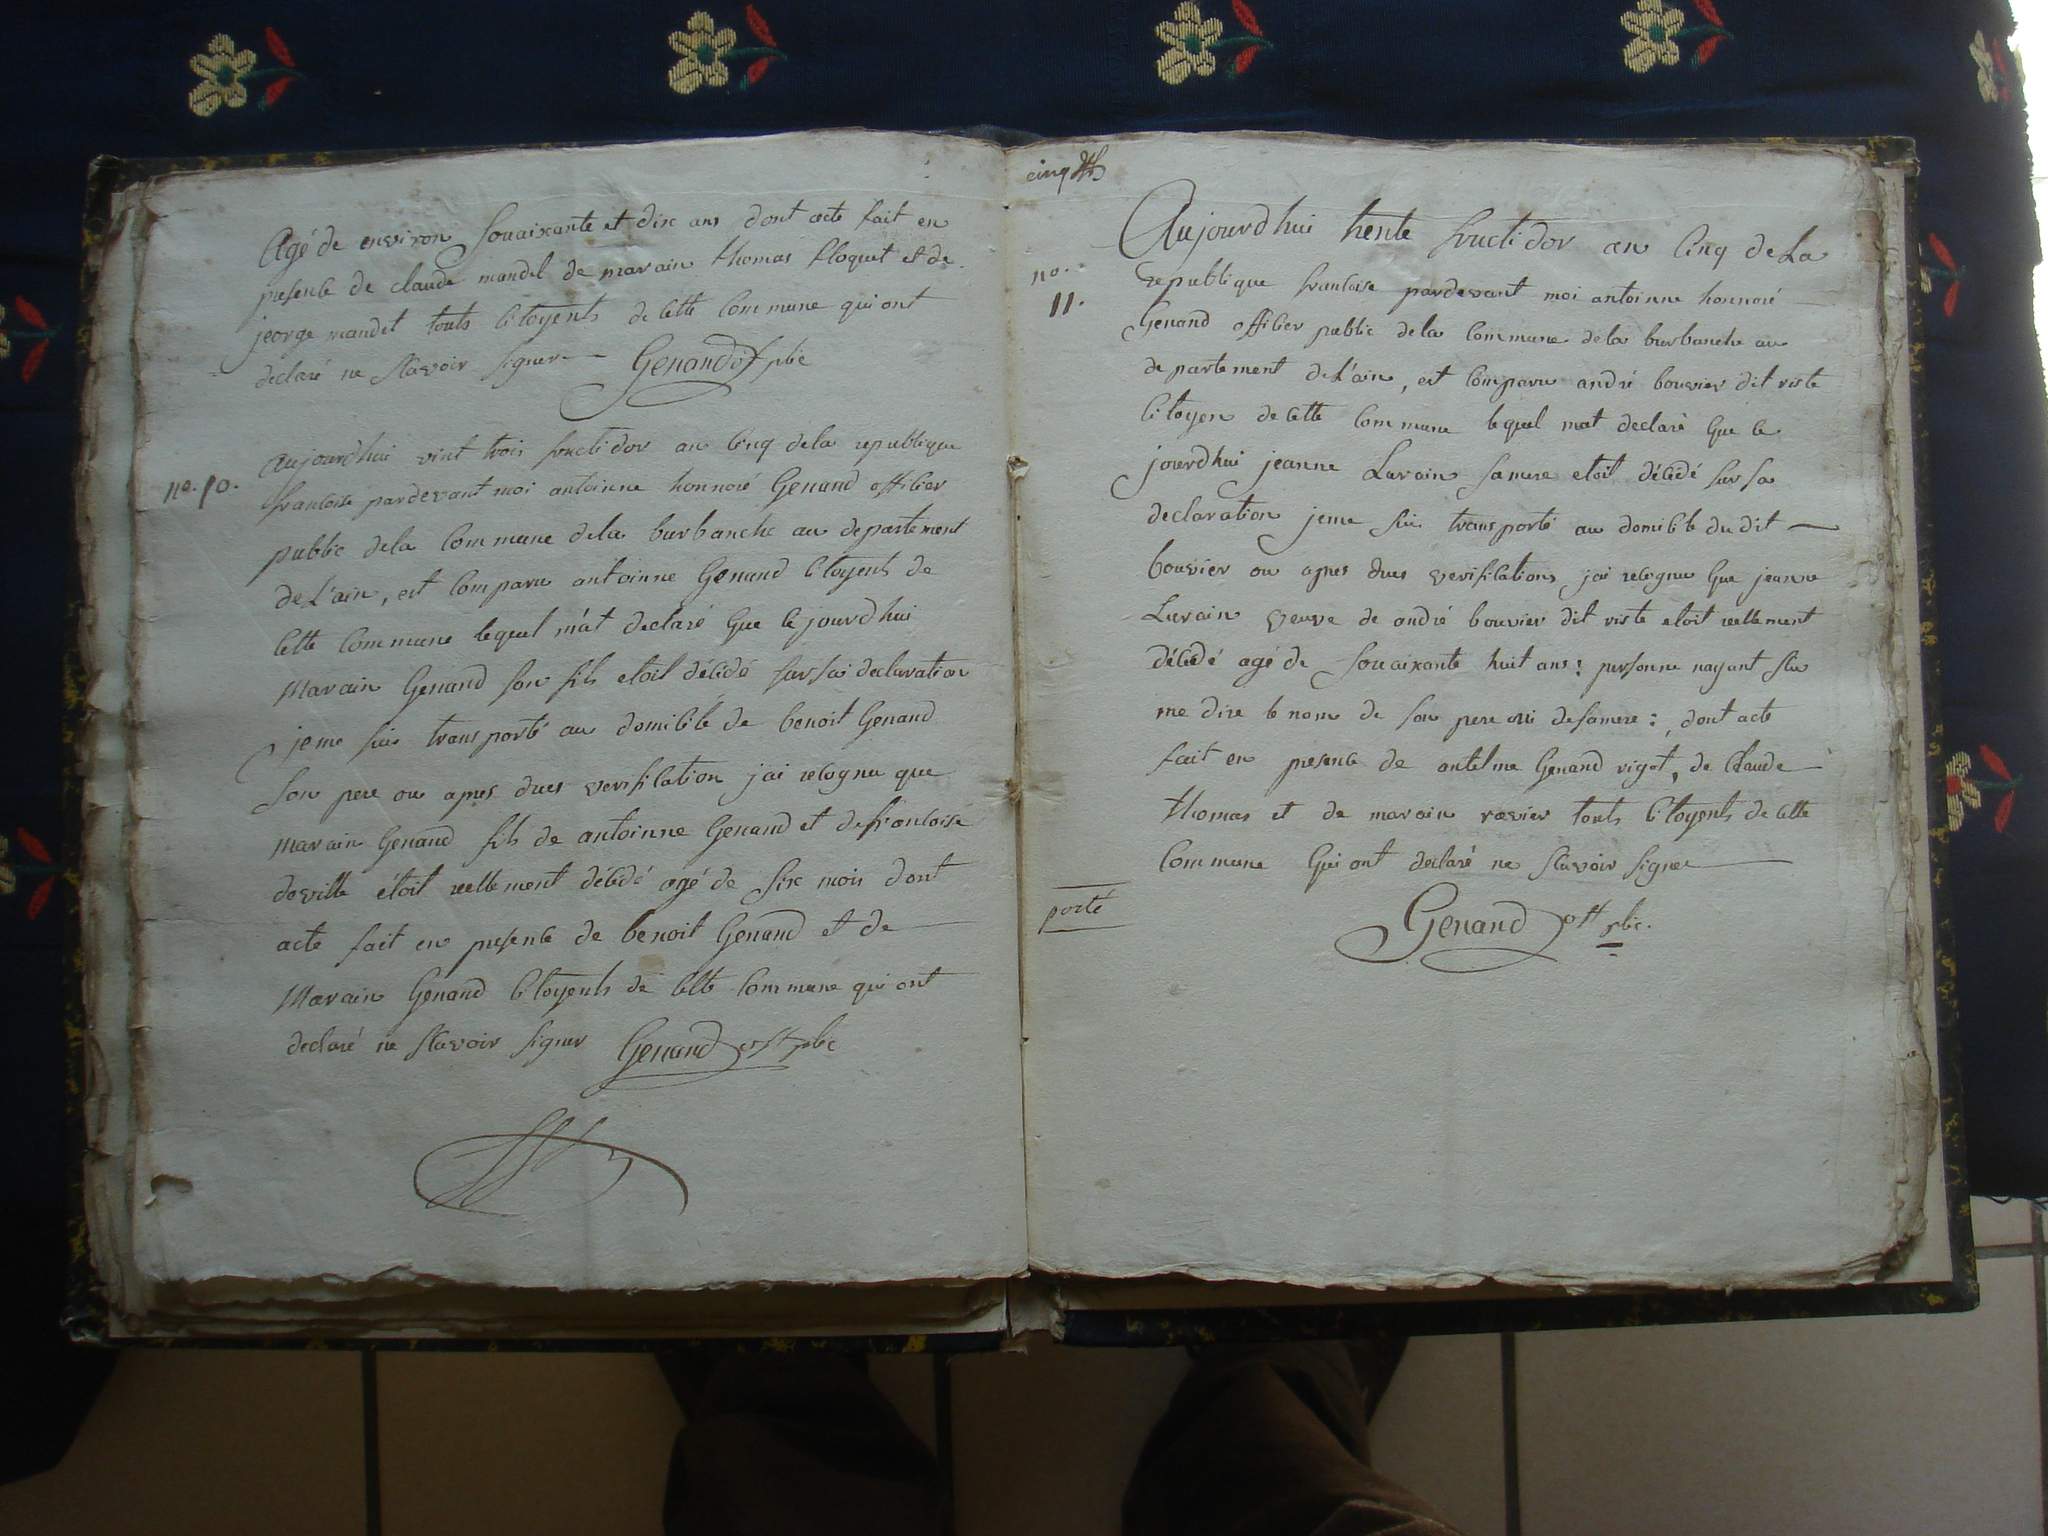 Agé de environ souaixante et dix ans dont acte fait en
presence de claude mandel de marain thomas floquet et de
jeorge mandel touts citoyents de cette commune qui ont
declaré ne scavoir signer Genand off plic
no. 10.
Aujourdhui vint trois fructidor an cinq dela republique
francoise pardevant moi antoinne honnoré Genand officier
public dela commune dela burbanche au departement
de L'ain, est comparu antoinne Genand citoyents de
cette commune lequel m'at declaré que ce jourdhui
Marain Genand son fils etoit décédé sur sa declaration
jeme suis transporté au domicile de benoit Genand
son pere ou apres dues verification j'ai recognu que
marain Genand fils de antoinne Genand et defrancoise
deville étoit reellement décédé agé de six mois dont
acte fait en presence de benoit Genand et de
Marain Genand citoyents de cette commune qui ont
declaré ne scavoir signer Genand off plic
cinq
no.
11.
Aujourdhui trente fructidor an cinq de La
republique francoise pardevant moi antoinne honnoré
Genand officier public dela commune dela burbanche au
departement de L'ain, est comparu andré bouvier dit viste
citoyen de cette commune lequel mat declaré que ce
jourdhui jeanne Luvain samere etoit décédé sur sa
declaration jeme suis transporté au domicile du dit
bouvier ou apres dues verifications jai recognu que jeanne
Luvain veuve de andré bouvier dit viste etoit reellement
décédé agé de souaixante huit ans : personne nayant scu
me dire le nom de son pere ni desamere : , dont acte
fait en presence de antelme Genand vigot, de Claude
thomas et de marain ravier touts citoyents de cette
commune qui ont declaré ne scavoir signer
porté
Genand off plic.